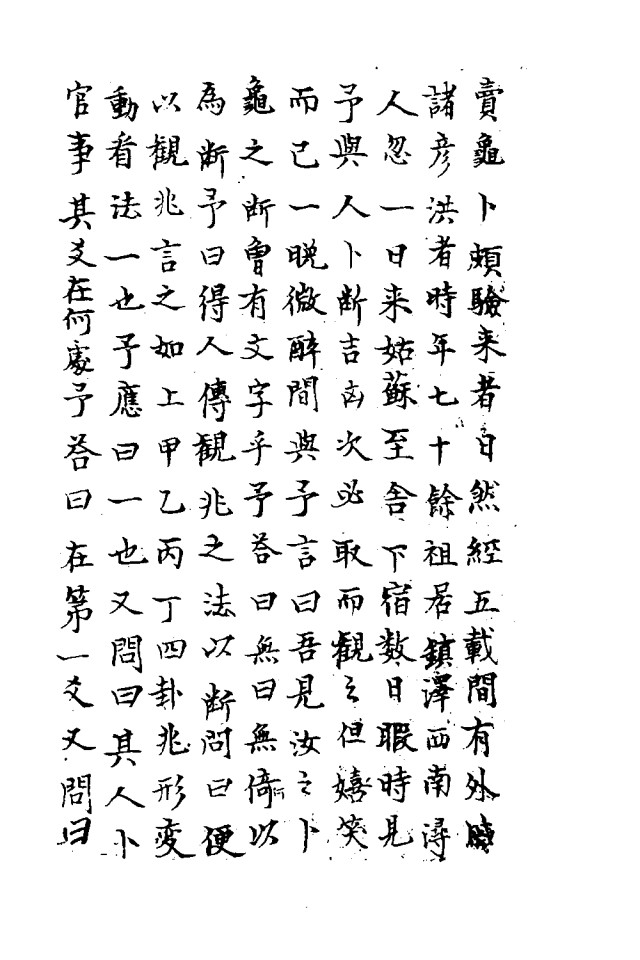 賣龜卜頗驗来者日然經五載間有外
諸彦洪者時年七十餘祖居鎮澤西南潯
人忽一日来姑蘇至舎下宿数日暇時見
予與人卜断吉凶次必取而觀之但嬉笑
而已一晚微醉間與予言曰吾見汝之卜
龜之断曾有文字乎予荅曰無曰無倚以
為断予曰得人傳觀兆之法以断問曰便
以觀兆言之如上甲乙丙丁四卦兆形変
動看法一也予應曰一也又問曰其人卜
官事其爻在何處予荅曰在第一爻又問曰